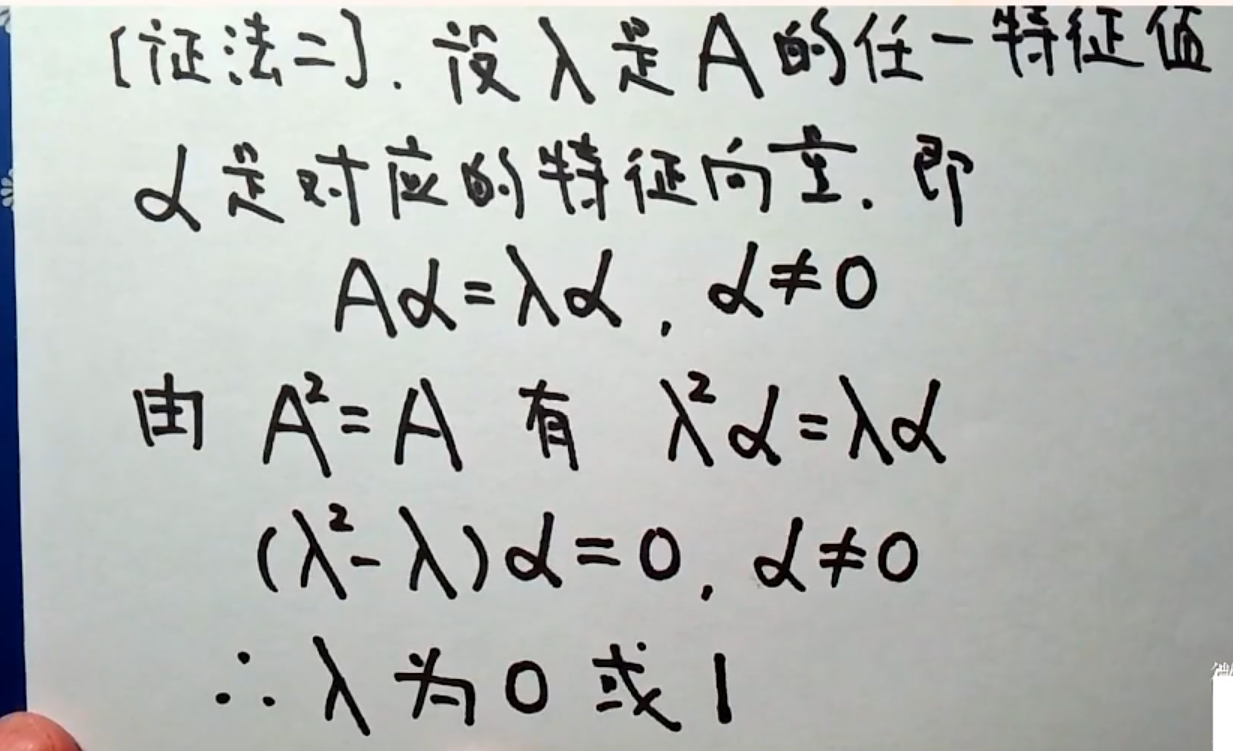 [证法二]. 设 λ 是 A 的任一特征值
α 是对应的特征向量. 即
Aα=λα, α≠0
由 A²=A 有 λ²α=λα
(λ²-λ)α=0, α≠0
∴ λ 为 0 或 1